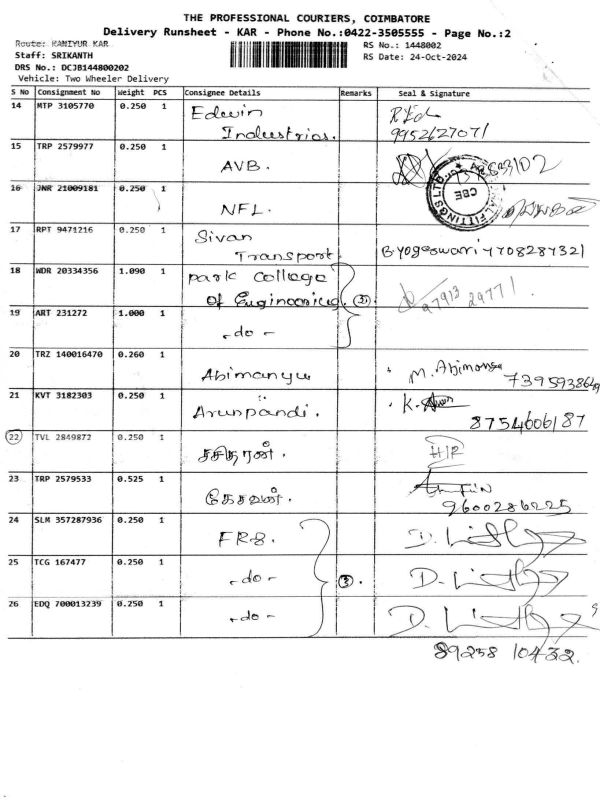 THE PROFESSIONAL COURIERS, COIMBATORE
Delivery Runsheet - KAR - Phone No.:0422-3505555 - Page No.:2
Route: KANIYUR KAR
RS No.: 1448002
Staff: SRIKANTH
RS Date: 24-Oct-2024
DRS No.: DCJB144800202
Vehicle: Two Wheeler Delivery
S No Consignment No Weight PCS Consignee Details Remarks Seal & Signature
14 MTP 3105770 0.250 1 Edwin
Industries.
9952627071
15 TRP 2579977 0.250 1
AVB.
16 JNR 21009181 0.250 1
NFL.
CBE
17 RPT 9471216 0.250 1 Sivan
Transport B Yogeswari 7708287321
18 WDR 20334356 1.090 1 Park College
of Engineering. 2
97913 29771.
19 ART 231272 1.000 1
-do-
20 TRZ 140016470 0.260 1
Abimanyu M. Abimanyu
7395938649
21 KVT 3182303 0.250 1
Arunpandi. K.
8754606187
22 TVL 2849872 0.250 1
சசிதரன். H/R
23 TRP 2579533 0.525 1
கேசவன்.
9600286225
24 SLM 357287936 0.250 1 FRS. D.
25 TCG 167477 0.250 1
-do- 3. D.
26 EDQ 700013239 0.250 1
-do- D.
89258 10432.